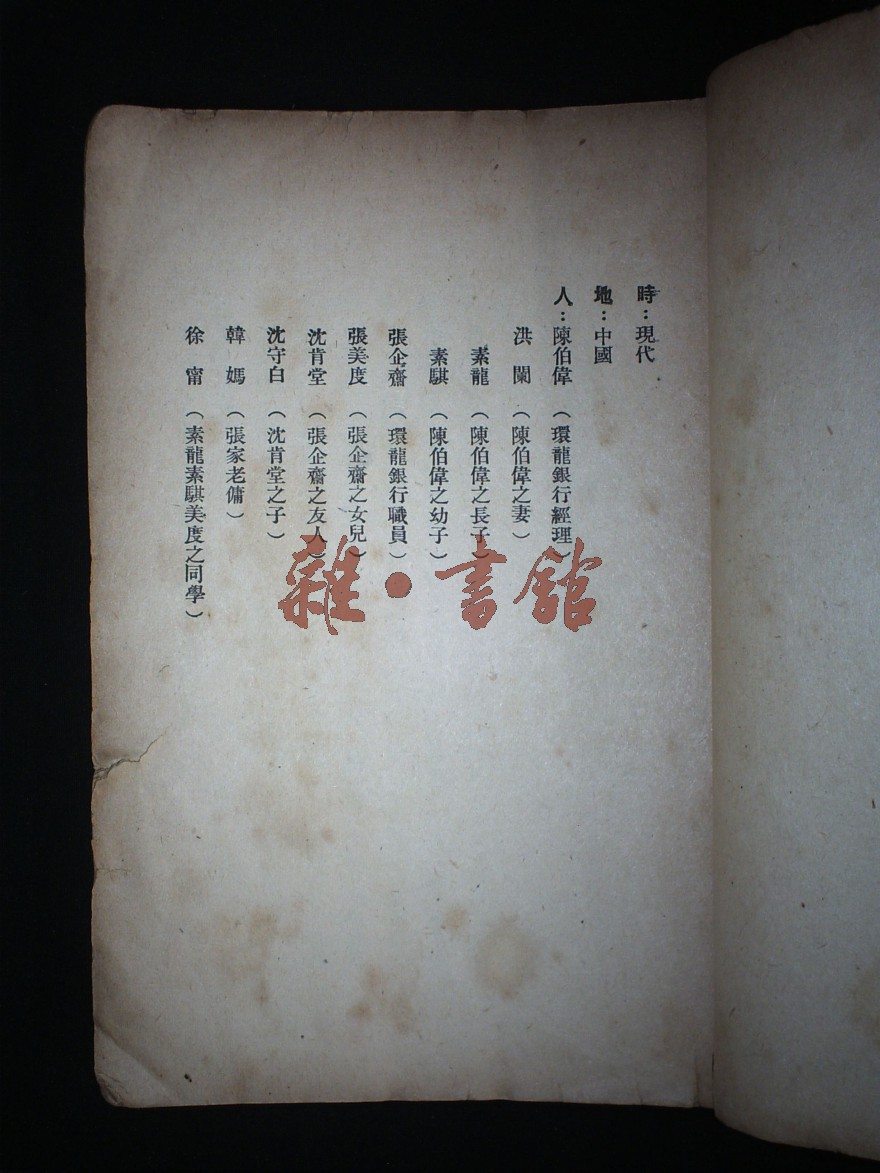 時：現代
地：中國
人：陳伯偉（環龍銀行經理）
洪　蘭（陳伯偉之妻）
素龍（陳伯偉之長子）
素騏（陳伯偉之幼子）
張企齋（環龍銀行職員）
張美度（張企齋之女兒）
沈肯堂（張企齋之友人）
沈守白（沈肯堂之子）
韓　媽（張家老傭）
徐　甯（素龍素騏美度之同學）
雜·書館